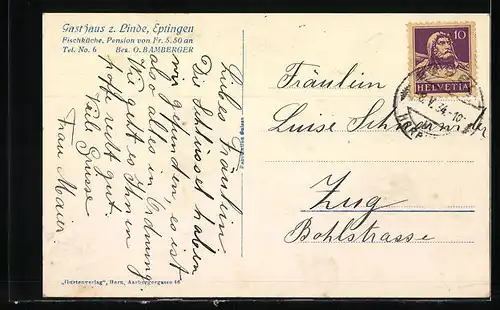 Gasthaus z. Linde, Eptingen
Fischküche, Pension von Fr. 5.50 an
Tel. No. 6 Bes. O. BAMBERGER
Liebes Fräulein
Die Schlüssel haben
wir gefunden, es ist
also alles in Ordnung.
Wie geht es Ihnen
hoffe recht gut.
Viele Grüsse
Frau Maier.
"Gurtenverlag", Bern, Aarbergergasse 46
10
HELVETIA
V. 34.-10
Fräulein
Luise
Zug
Bohlstrasse